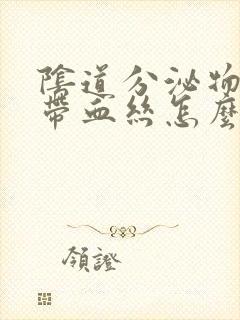 陰道分泌物
帶血絲怎麼
領證